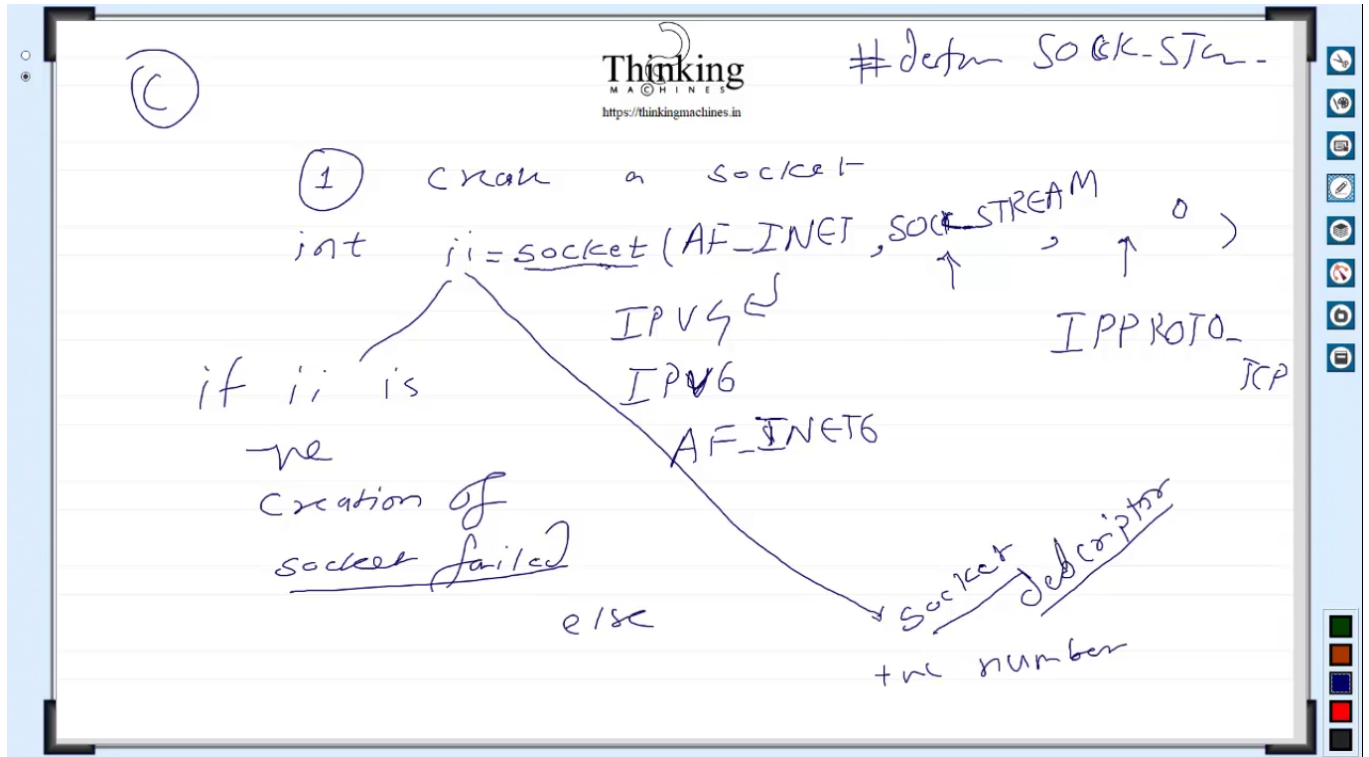 C
Thinking
MACHINES
https://thinkingmachines.in
# SOCK_STR
1 a socket
int ii = socket (AF_INET, SOCK_STREAM, 0)
IPV4
IPPROTO_
TCP
IPV6
AF_INET6
if ii is
-ve
creation of
socket failed
else
socket descriptor
+ve number